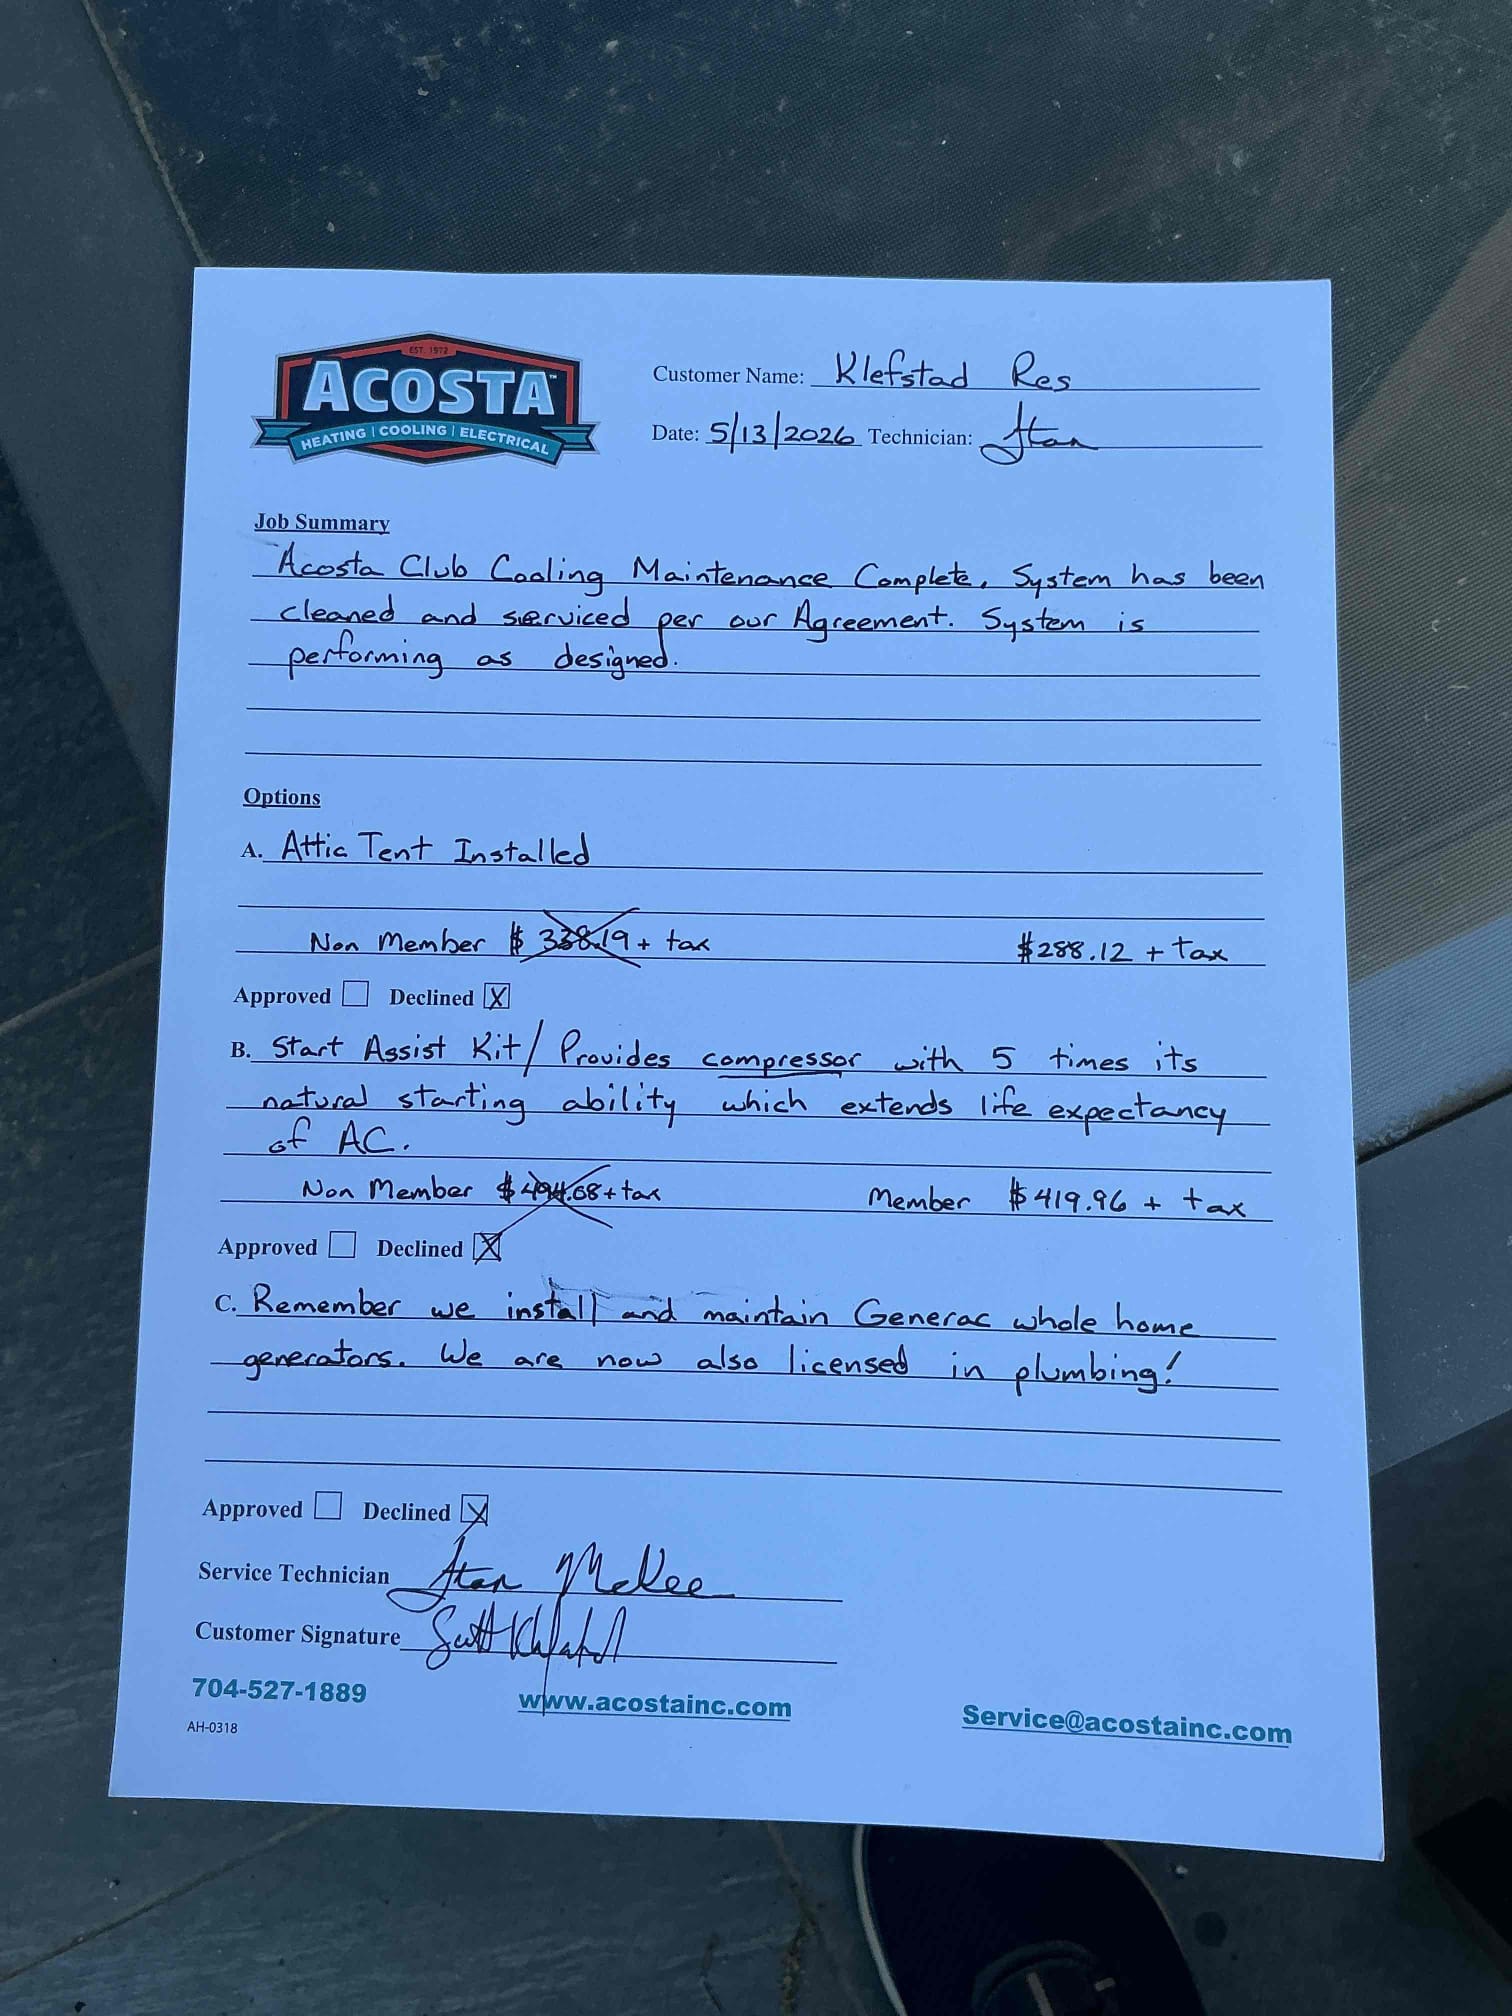 EST. 1972
ACOSTA™
HEATING | COOLING | ELECTRICAL
Customer Name: Klefstad Res
Date: 5/13/2026 Technician: Stan
Job Summary
Acosta Club Cooling Maintenance Complete. System has been
cleaned and serviced per our Agreement. System is
performing as designed.
Options
A. Attic Tent Installed
Non Member $ 338.19 + tax $288.12 + tax
Approved Declined X
B. Start Assist Kit/ Provides compressor with 5 times its
natural starting ability which extends life expectancy
of AC.
Non Member $494.08 + tax Member $419.96 + tax
Approved Declined X
C. Remember we install and maintain Generac whole home
generators. We are now also licensed in plumbing!
Approved Declined X
Service Technician Stan McKee
Customer Signature Scott Klefstad
704-527-1889 www.acostainc.com Service@acostainc.com
AH-0318